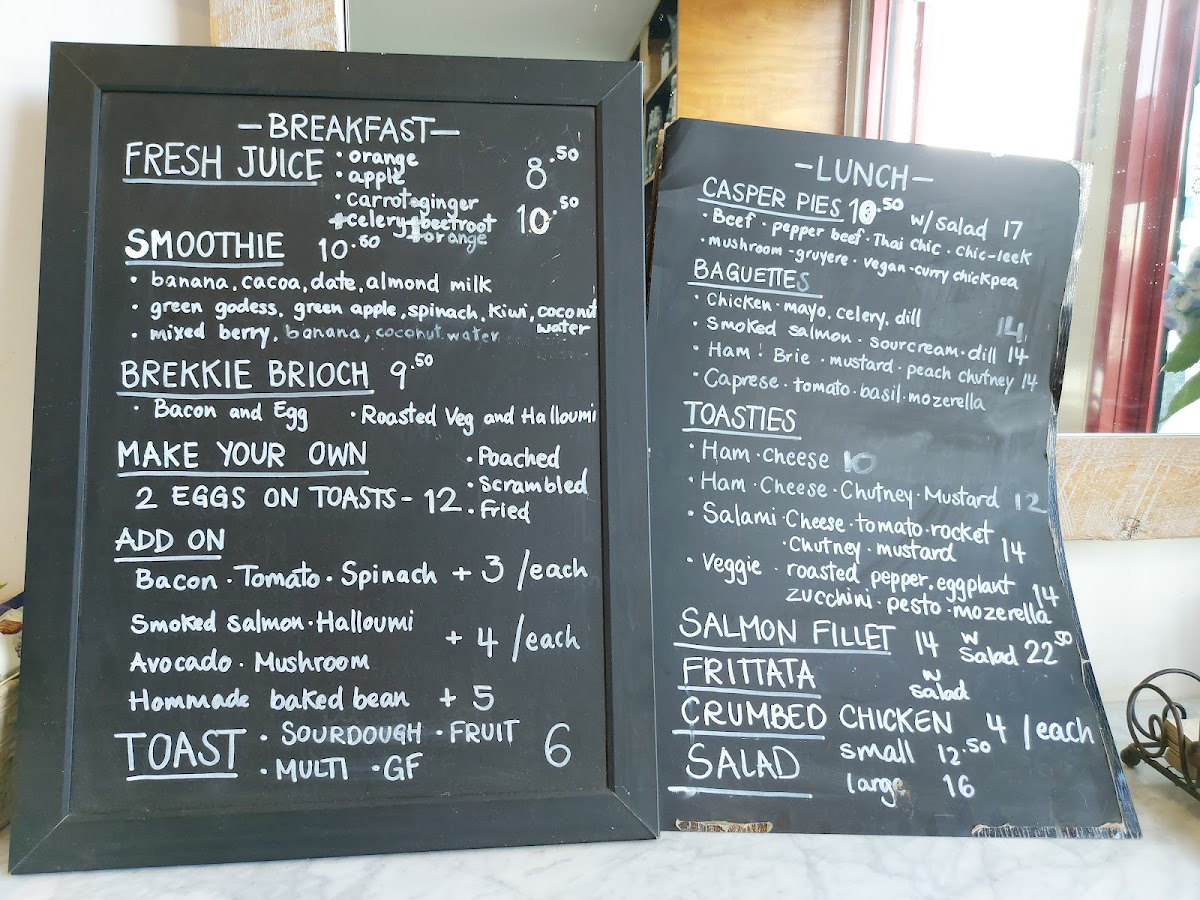 -BREAKFAST-
FRESH JUICE • orange 8.50
• apple
• carrot+ginger
+celery+beetroot 10.50
+orange
SMOOTHIE 10.50
• banana, cacoa, date, almond milk
• green godess, green apple, spinach, kiwi, coconut
water
• mixed berry, banana, coconut water
BREKKIE BRIOCH 9.50
• Bacon and Egg • Roasted Veg and Halloumi
MAKE YOUR OWN • Poached
2 EGGS ON TOASTS - 12 • Scrambled
• Fried
ADD ON
Bacon • Tomato • Spinach + 3 /each
Smoked salmon • Halloumi
+ 4 /each
Avocado • Mushroom
Hommade baked bean + 5
TOAST • SOURDOUGH • FRUIT 6
• MULTI • GF
-LUNCH-
CASPER PIES 10.50 w/ salad 17
• Beef • pepper beef • Thai chic • chic-leek
• mushroom-gruyere • vegan-curry chickpea
BAGUETTES
• Chicken • mayo, celery, dill 14
• Smoked salmon • sourcream • dill 14
• Ham • Brie • mustard • peach chutney 14
• Caprese • tomato • basil • mozerella
TOASTIES
• Ham • Cheese 10
• Ham • Cheese • Chutney • Mustard 12
• Salami • Cheese • tomato • rocket
• Chutney • mustard 14
• Veggie • roasted pepper, eggplant 14
zucchini • pesto • mozerella
SALMON FILLET 14 w salad 22.50
FRITTATA w salad
CRUMBED CHICKEN 4 /each
SALAD small 12.50
large 16